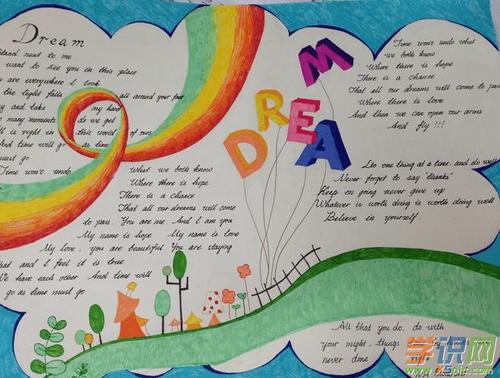 Dream
Stand next to me
want to see you in this place
are everywhere I look
the light falls all around your
and take my hand
many moments do we get
is right in this world of ours
And time will go as time
must go
Time won't undo what
we both know
Where there is hope
There is a chance
That all our dreams will come
to pass. You are me. And I am you
My name is hope My name is love
My love, you are beautiful You are staying
that and I feel it is true
We have each other And time will
go as time must go
DREAM
Time won't undo what
we both know
Where there is hope
There is a chance
That all our dreams will come to pass
Where there is love
And then we can open our arms
And fly !!!
Do one thing at a time, and do well
Never forget to say "thanks"
Keep on going never give up
Whatever is worth doing is worth doing well
Believe in yourself
All that you do, do with
your might, things by
never done
学识网